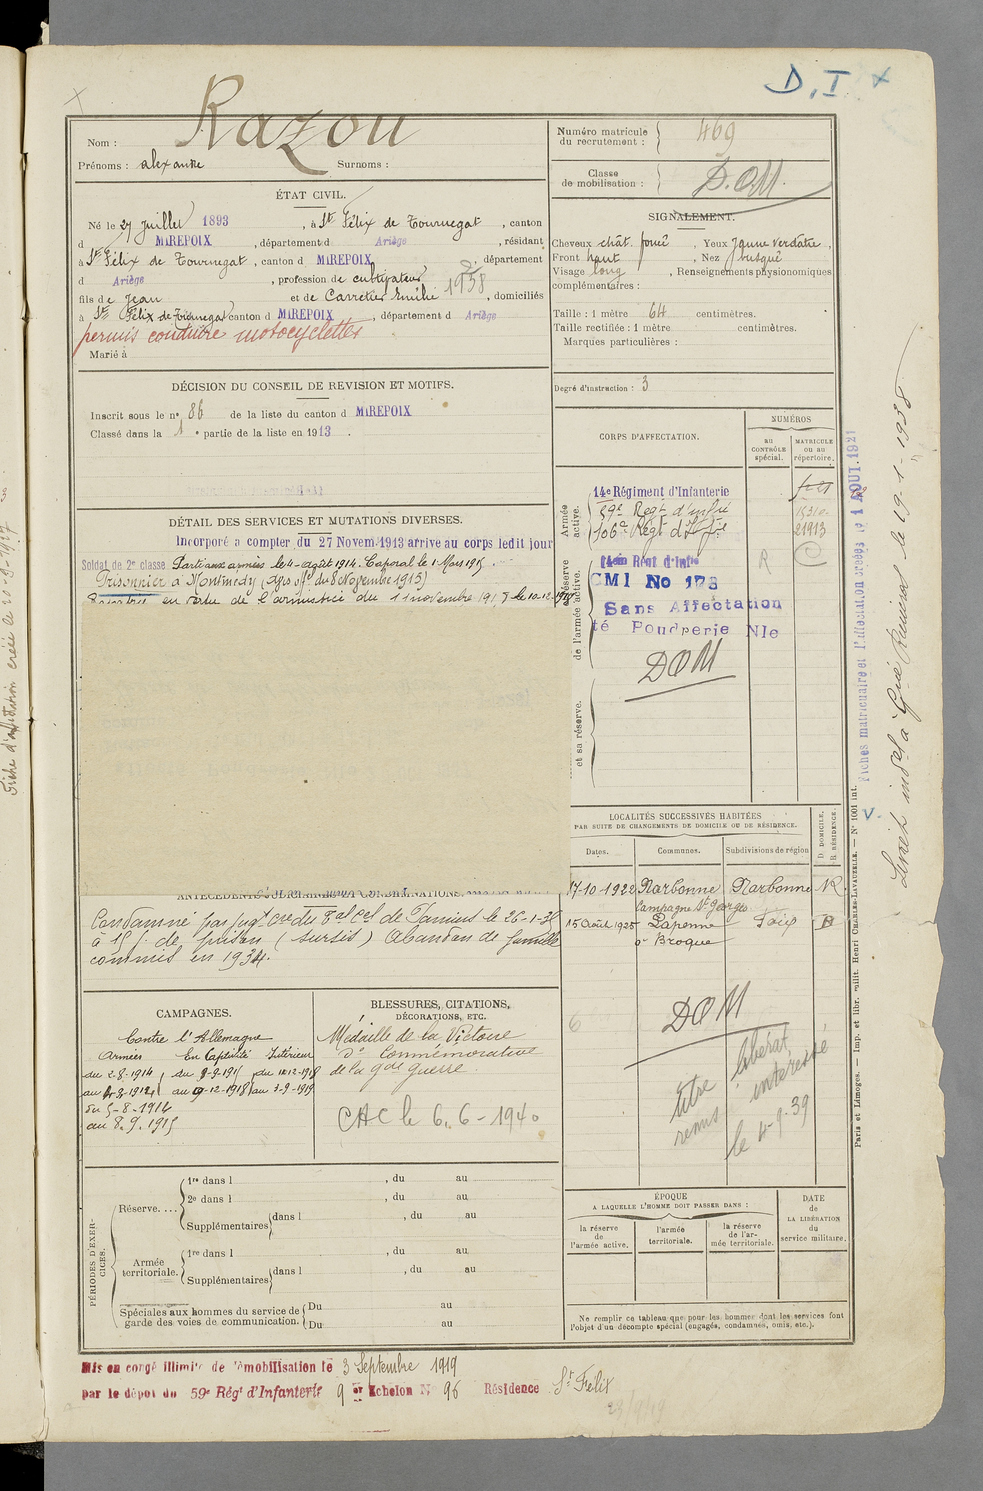 D.I x
Nom : Razou
Prénoms : alexandre Surnoms :
Numéro matricule du recrutement : 469
Classe de mobilisation : D.O.M.
ÉTAT CIVIL.
Né le 27 Juillet 1893, à St Félix de Tournegat, canton
d MIREPOIX, département d Ariège, résidant
à St Félix de Tournegat, canton d MIREPOIX, département
d Ariège, profession de cultivateur
1938
fils de Jean et de Carretier Emilie, domiciliés
à St Félix de Tournegat canton d MIREPOIX, département d Ariège
permis conduire motocyclettes
Marié à
SIGNALEMENT.
Cheveux chât. foncé, Yeux Jaune verdâtre,
Front haut, Nez busqué
Visage long, Renseignements physionomiques
complémentaires :
Taille : 1 mètre 64 centimètres.
Taille rectifiée : 1 mètre centimètres.
Marques particulières :
Degré d'instruction : 3
DÉCISION DU CONSEIL DE REVISION ET MOTIFS.
Inscrit sous le n° 86 de la liste du canton d MIREPOIX
Classé dans la 1e partie de la liste en 1913.
DÉTAIL DES SERVICES ET MUTATIONS DIVERSES.
Incorporé a compter du 27 Novem. 1913 arrive au corps ledit jour
Soldat de 2e classe. Parti aux armées le 4 août 1914. Caporal le 1 Mars 1915.
Prisonnier à Montmedy (Avis off. du 8 Novembre 1915)
en vertu de l'armistice du 11 novembre 1918 le 10-12-1918
CORPS D'AFFECTATION.
NUMÉROS
au CONTRÔLE spécial.
MATRICULE ou au répertoire.
Armée active.
14e Régiment d'Infanterie
59e Regt d'infrie
106e Régt d'Infrie
21913
Réserve de l'armée active.
14em Rént d'Infie
R
C
CMI No 173
Sans Affectation
té Poudrerie Nle
DOM
et sa réserve.
LOCALITÉS SUCCESSIVES HABITÉES
PAR SUITE DE CHANGEMENTS DE DOMICILE OU DE RÉSIDENCE.
Dates. Communes. Subdivisions de région D. DOMICILE. R. RÉSIDENCE.
17-10-1922 Narbonne Narbonne R
Campagne St Georges
15 Août 1925 Lapenne Foix D
Broque
DOM
titre libérat
remis intéressé
le 4-9-39
ANTÉCÉDENTS JUDICIAIRES ET CONDAMNATIONS.
Condamné par jugt cre du Tal cel de Pamiers le 26-1-35
à 15 j. de prison (sursis) Abandon de famille
commis en 1934.
CAMPAGNES.
Contre l'Allemagne
Armées En Captivité Intérieur
du 2-8-1914 du 9-9-1915 du 10-12-1918
au 4-8-1914 au 9-12-1918 au 3-9-1919
du 5-8-1914
au 8.9.1915
BLESSURES, CITATIONS,
DÉCORATIONS, ETC.
Médaille de la Victoire
do Commémorative
de la gde guerre.
CAC le 6.6-1940
PÉRIODES D'EXERCICES.
Réserve....
1re dans l , du au
2e dans l , du au
Supplémentaires dans l , du au
Armée territoriale.
1re dans l , du au
Supplémentaires dans l , du au
Spéciales aux hommes du service de garde des voies de communication.
Du au
Du au
ÉPOQUE
A LAQUELLE L'HOMME DOIT PASSER DANS :
la réserve de l'armée active.
l'armée territoriale.
la réserve de l'armée territoriale.
DATE de LA LIBÉRATION du service militaire.
Ne remplir ce tableau que pour les hommes dont les services font
l'objet d'un décompte spécial (engagés, condamnés, omis, etc.).
Mis en congé illimité de démobilisation le 3 Septembre 1919
par le dépôt du 59e Régt d'Infanterie 9 Echelon N° 96 Résidence St Félix
Fiches matriculaire et d'affectation créées le 1 AOUT. 1921
Paris et Limoges. — Imp. et libr. milit. Henri CHARLES-LAVAUZELLE. — N° 1001 int.